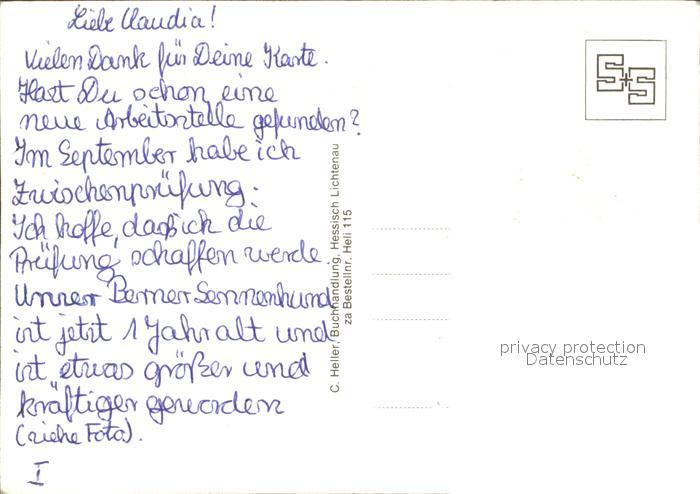 Liebe Claudia!
Vielen Dank für Deine Karte.
Hast Du schon eine
neue Arbeitsstelle gefunden?
Im September habe ich
Zwischenprüfung.
Ich hoffe, dass ich die
Prüfung schaffen werde.
Unser Berner Sennenhund
ist jetzt 1 Jahr alt und
ist etwas größer und
kräftiger geworden
(siehe Foto).
I
C. Heller, Buchhandlung, Hessisch Lichtenau
za Bestellnr. Heli 115
S+S
privacy protection
Datenschutz